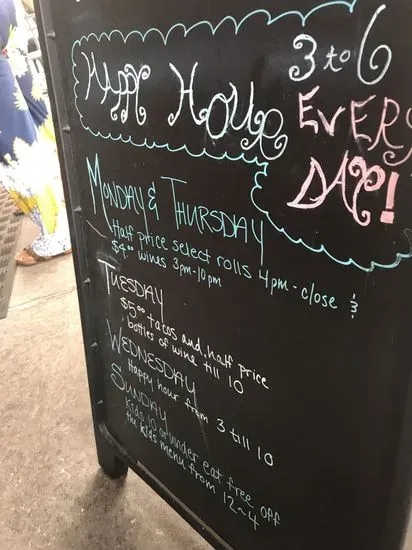 Happy Hour
3 to 6
EVERY
DAY!
Monday & Thursday
Half price select rolls 4pm - close &
$4.00 wines 3pm-10pm
Tuesday
$5.00 tacos and half price
bottles of wine till 10
Wednesday
Happy hour from 3 till 10
Sunday
Kids 10 or under eat free off
the kids menu from 12-4